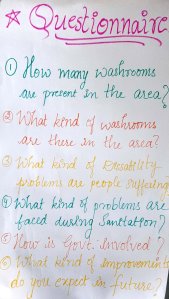 ☆ Questionnaire
① How many washrooms
are present in the area?
② What kind of washrooms
are there in the area?
③ What kind of Disability
problems are people suffering
④ What kind of problems are
faced during Sanitation?
⑤ How is Govt. involved?
⑥ What kind of improvements
do you expect in future?